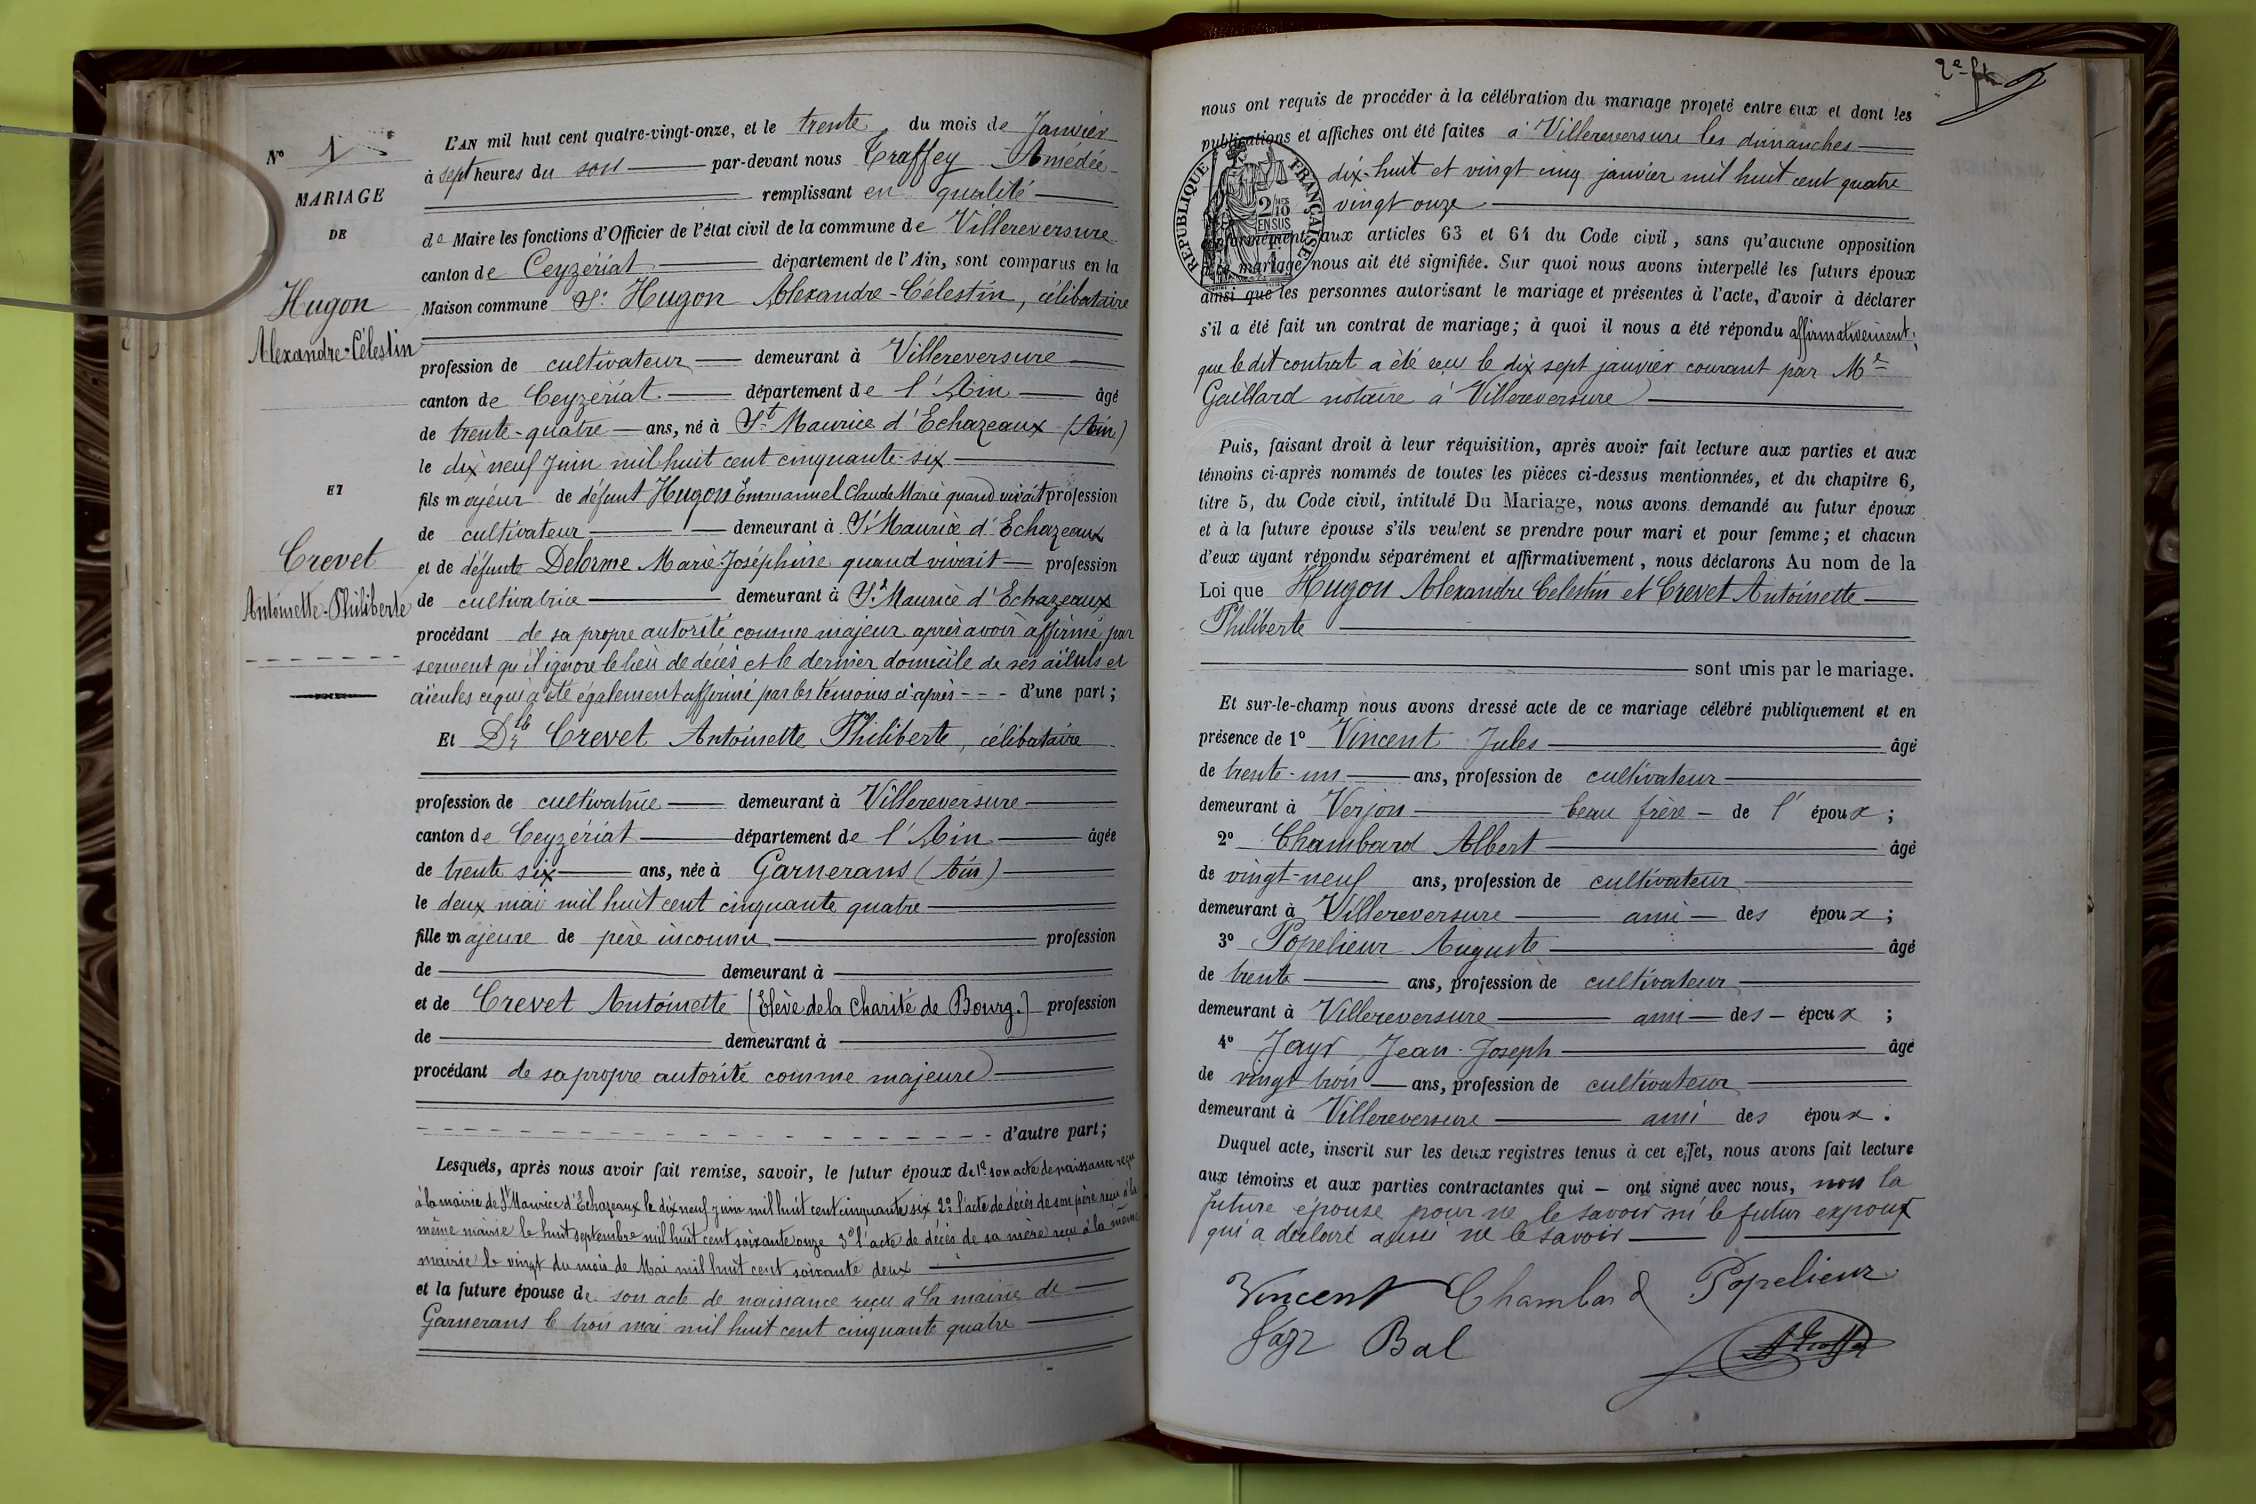 N° 1
MARIAGE
DE
Hugon
Alexandre-Célestin
ET
Crevet
Antoinette-Philiberte
L'AN mil huit cent quatre-vingt-onze, et le trente du mois de Janvier
à sept heures du soir par-devant nous Traffey Amédée
remplissant en qualité
de Maire les fonctions d'Officier de l'état civil de la commune de Villereversure
canton de Ceyzériat département de l'Ain, sont comparus en la
Maison commune Sr Hugon Alexandre-Célestin, célibataire
profession de cultivateur demeurant à Villereversure
canton de Ceyzériat département de l'Ain âgé
de trente-quatre ans, né à St Maurice d'Echazeaux (Ain)
le dix neuf Juin mil huit cent cinquante-six
fils majeur de défunt Hugon Emmanuel Claude Marie quand vivait profession
de cultivateur demeurant à St Maurice d'Echazeaux
et de défunte Delorme Marie-Joséphine quand vivait profession
de cultivatrice demeurant à St Maurice d'Echazeaux
procédant de sa propre autorité comme majeur après avoir affirmé par
serment qu'il ignore le lieu de décès et le dernier domicile de ses aïeuls et
aïeules ce qui a été également affirmé par les témoins ci-après - - - d'une part ;
Et Dlle Crevet Antoinette Philiberte, célibataire
profession de cultivatrice demeurant à Villereversure
canton de Ceyzériat département de l'Ain âgée
de trente six ans, née à Garnerans (Ain)
le deux mai mil huit cent cinquante quatre
fille majeure de père inconnu profession
de demeurant à
et de Crevet Antoinette (Elève de la Charité de Bourg.) profession
de demeurant à
procédant de sa propre autorité comme majeure
d'autre part ;
Lesquels, après nous avoir fait remise, savoir, le futur époux de 1° son acte de naissance reçu
à la mairie de St Maurice d'Echazeaux le dix neuf juin mil huit cent cinquante six 2° l'acte de décès de son père reçu à la
même mairie le huit septembre mil huit cent soixante onze 3° l'acte de décès de sa mère reçu à la même
mairie le vingt du mois de Mai mil huit cent soixante deux
et la future épouse de son acte de naissance reçu à la mairie de
Garnerans le trois mai mil huit cent cinquante quatre
2e ft
nous ont requis de procéder à la célébration du mariage projeté entre eux et dont les
publications et affiches ont été faites à Villereversure les dimanches
dix-huit et vingt cinq janvier mil huit cent quatre
vingt onze
RÉPUBLIQUE FRANÇAISE
2/10 EN SUS
conformément aux articles 63 et 64 du Code civil, sans qu'aucune opposition
à ce mariage nous ait été signifiée. Sur quoi nous avons interpellé les futurs époux
ainsi que les personnes autorisant le mariage et présentes à l'acte, d'avoir à déclarer
s'il a été fait un contrat de mariage ; à quoi il nous a été répondu affirmativement ;
que le dit contrat a été reçu le dix sept janvier courant par Me
Gaillard notaire à Villereversure
Puis, faisant droit à leur réquisition, après avoir fait lecture aux parties et aux
témoins ci-après nommés de toutes les pièces ci-dessus mentionnées, et du chapitre 6,
titre 5, du Code civil, intitulé Du Mariage, nous avons demandé au futur époux
et à la future épouse s'ils veulent se prendre pour mari et pour femme ; et chacun
d'eux ayant répondu séparément et affirmativement, nous déclarons Au nom de la
Loi que Hugon Alexandre Celestin et Crevet Antoinette
Philiberte
sont unis par le mariage.
Et sur-le-champ nous avons dressé acte de ce mariage célébré publiquement et en
présence de 1° Vincent Jules âgé
de trente-un ans, profession de cultivateur
demeurant à Verjon beau frère de l'époux ;
2° Chambard Albert âgé
de vingt-neuf ans, profession de cultivateur
demeurant à Villereversure ami des époux ;
3° Popelieur Auguste âgé
de trente ans, profession de cultivateur
demeurant à Villereversure ami des époux ;
4° Jayr Jean-Joseph âgé
de vingt trois ans, profession de cultivateur
demeurant à Villereversure ami des époux.
Duquel acte, inscrit sur les deux registres tenus à cet effet, nous avons fait lecture
aux témoins et aux parties contractantes qui - ont signé avec nous, non la
future épouse pour ne le savoir ni le futur expoux
qui a declaré aussi ne le savoir
Vincent Chambard Popelieur
Jayr Bal